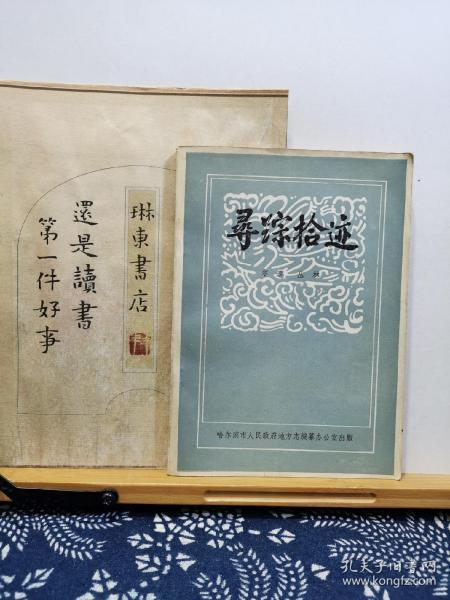 琳東書店
還是讀書
第一件好事
尋踪拾迹
丛
哈尔滨市人民政府地方志编纂办公室出版
孔夫子旧书网
www.kongfz.com